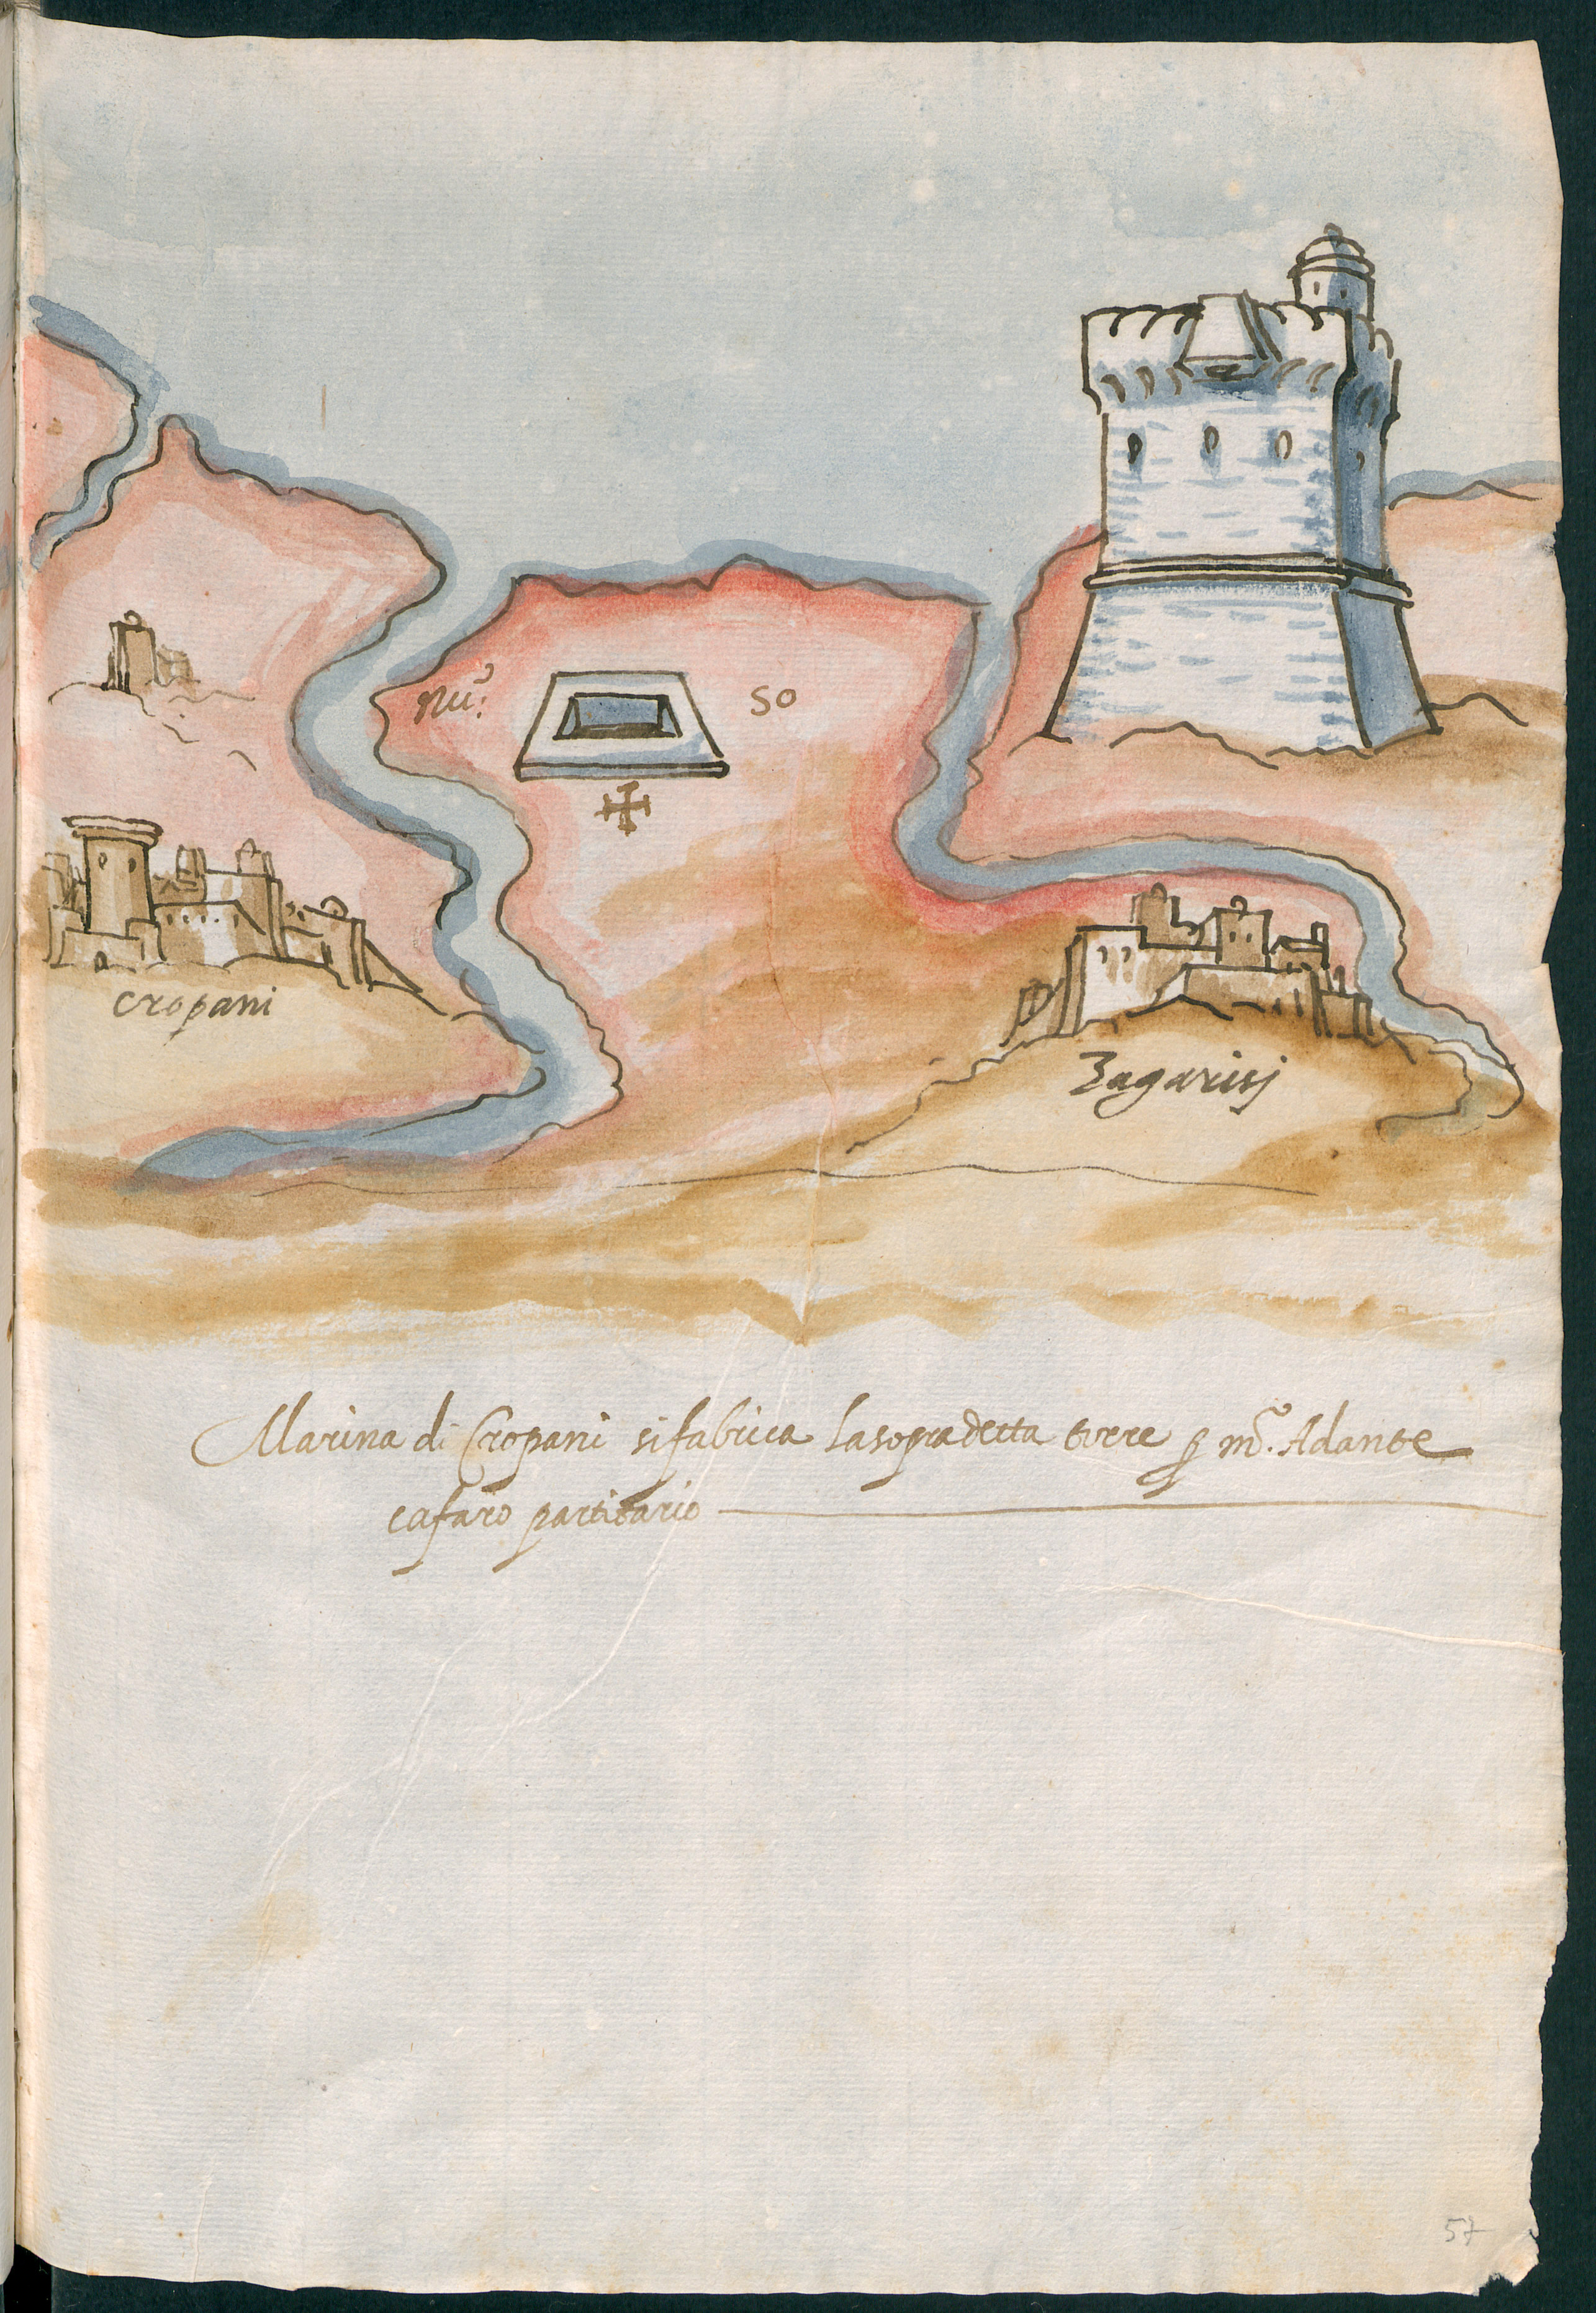 nu.º 50
cropani
Zagarisj
Marina di Cropani si fabrica la sopradetta torre p m.º Adante
cafaro partitario
57